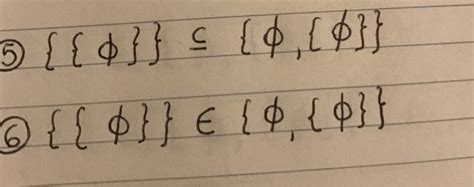 ⑤ {{ϕ}} ⊆ {ϕ,{ϕ}}
⑥ {{ϕ}} ∈ {ϕ,{ϕ}}